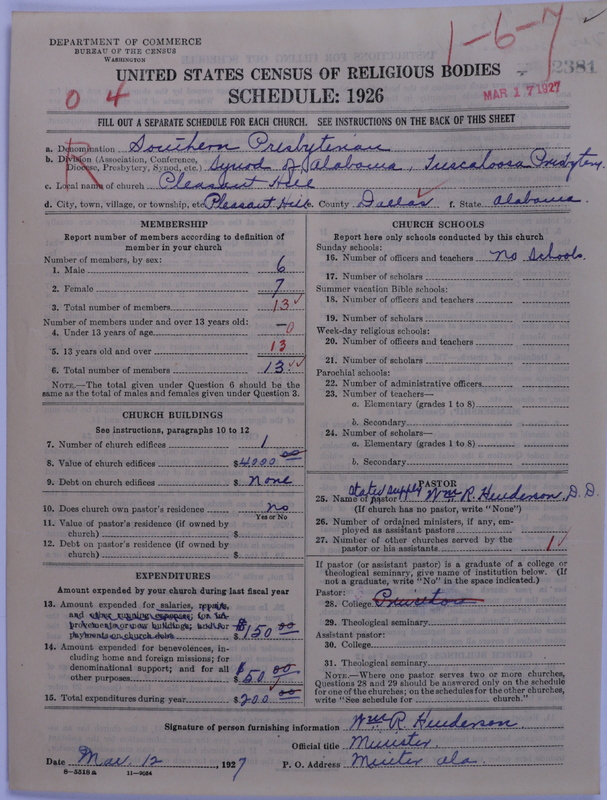 1-6-7
DEPARTMENT OF COMMERCE
BUREAU OF THE CENSUS
WASHINGTON
2381
UNITED STATES CENSUS OF RELIGIOUS BODIES
SCHEDULE: 1926
0 4
MAR 17 1927
FILL OUT A SEPARATE SCHEDULE FOR EACH CHURCH. SEE INSTRUCTIONS ON THE BACK OF THIS SHEET
R
a. Denomination Southern Presbyterian
b. Division (Association, Conference, Diocese, Presbytery, Synod, etc.) Synod of Alabama, Tuscaloosa Presbytery
c. Local name of church Pleasant Hill
d. City, town, village, or township, etc. Pleasant Hill e. County Dallas f. State Alabama.
MEMBERSHIP
Report number of members according to definition of
member in your church
Number of members, by sex:
1. Male 6
2. Female 7
3. Total number of members 13
Number of members under and over 13 years old:
4. Under 13 years of age 0
5. 13 years old and over 13
6. Total number of members 13
NOTE.—The total given under Question 6 should be the
same as the total of males and females given under Question 3.
CHURCH BUILDINGS
See instructions, paragraphs 10 to 12
7. Number of church edifices 1
8. Value of church edifices $4000 00
9. Debt on church edifices $ None
10. Does church own pastor's residence no
Yes or No
11. Value of pastor's residence (if owned by
church) $
12. Debt on pastor's residence (if owned by
church) $
EXPENDITURES
Amount expended by your church during last fiscal year
13. Amount expended for salaries, repairs,
and other running expenses; for im-
provements or new buildings; and for
payments on church debt $150 00
14. Amount expended for benevolences, in-
cluding home and foreign missions; for
denominational support; and for all
other purposes $50 00
15. Total expenditures during year $200 00
CHURCH SCHOOLS
Report here only schools conducted by this church
Sunday schools:
16. Number of officers and teachers No Schools.
17. Number of scholars
Summer vacation Bible schools:
18. Number of officers and teachers
19. Number of scholars
Week-day religious schools:
20. Number of officers and teachers
21. Number of scholars
Parochial schools:
22. Number of administrative officers
23. Number of teachers—
a. Elementary (grades 1 to 8)
b. Secondary
24. Number of scholars—
a. Elementary (grades 1 to 8)
b. Secondary
PASTOR
stated supply
25. Name of pastor Wm R. Henderson, D.D.
(If church has no pastor, write "None")
26. Number of ordained ministers, if any, em-
ployed as assistant pastors
27. Number of other churches served by the
pastor or his assistants 1
If pastor (or assistant pastor) is a graduate of a college or
theological seminary, give name of institution below. (If
not a graduate, write "No" in the space indicated.)
Pastor:
28. College Princeton
29. Theological seminary
Assistant pastor:
30. College
31. Theological seminary
NOTE.—Where one pastor serves two or more churches,
Questions 28 and 29 should be answered only on the schedule
for one of the churches; on the schedules for the other churches,
write "See schedule for church."
Signature of person furnishing information Wm R Henderson
Official title Minister.
Date Mar. 12, 1927 P. O. Address Ala.
8-5518 a 11-9034